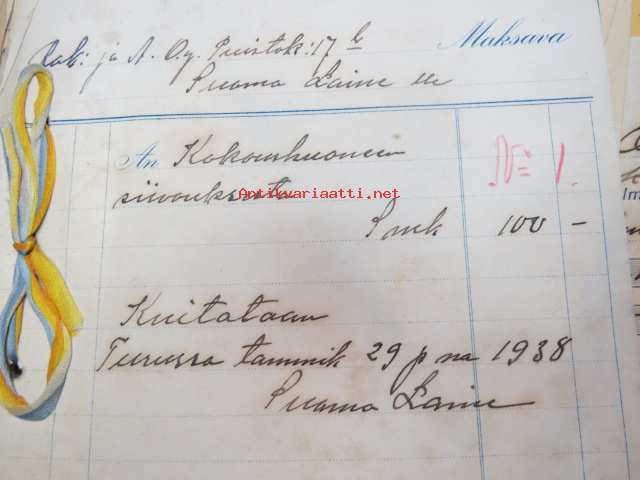 Rak: ja A. O.y. Puistok: 17 b Maksava
Suoma Laine lle
An Kokoushuoneen
N:º 1.
siivouksesta
Antikvariaatti.net
Smk 100 -
Kuitataan
Turussa tammik 29 p na 1938
Suoma Laine